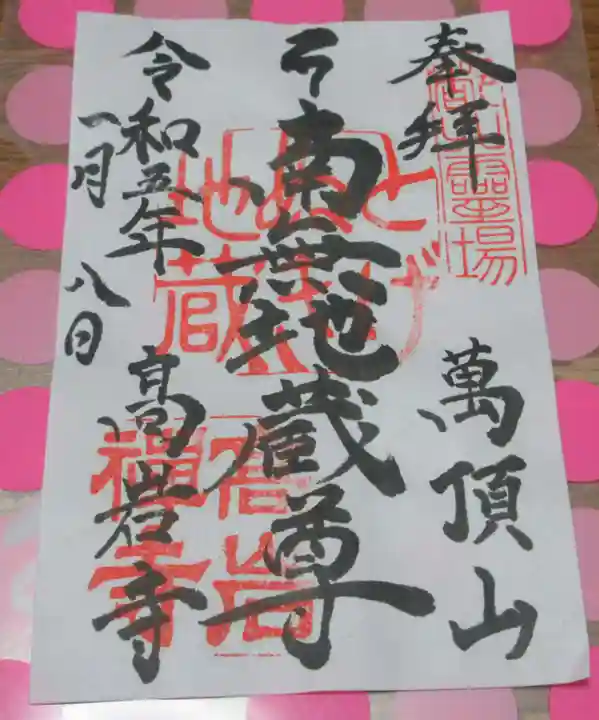 奉拝
萬頂山
南無地蔵尊
令和五年
一月八日
高岩寺
霊場
とげ
地蔵
高岩
禅寺